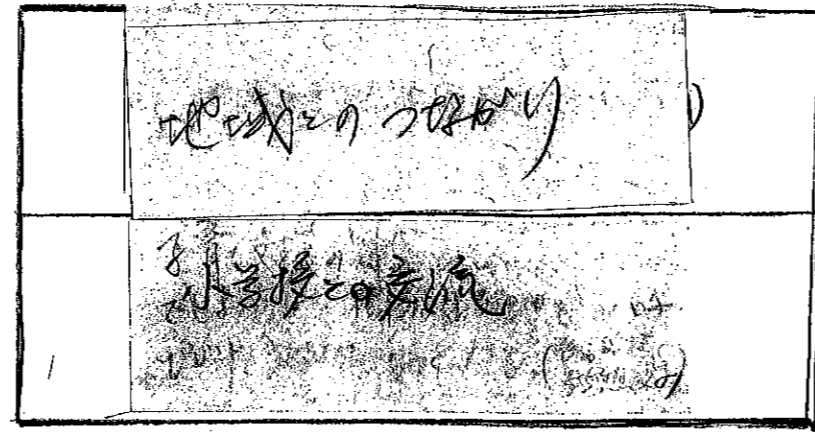 地域とのつながり
小学校との交流